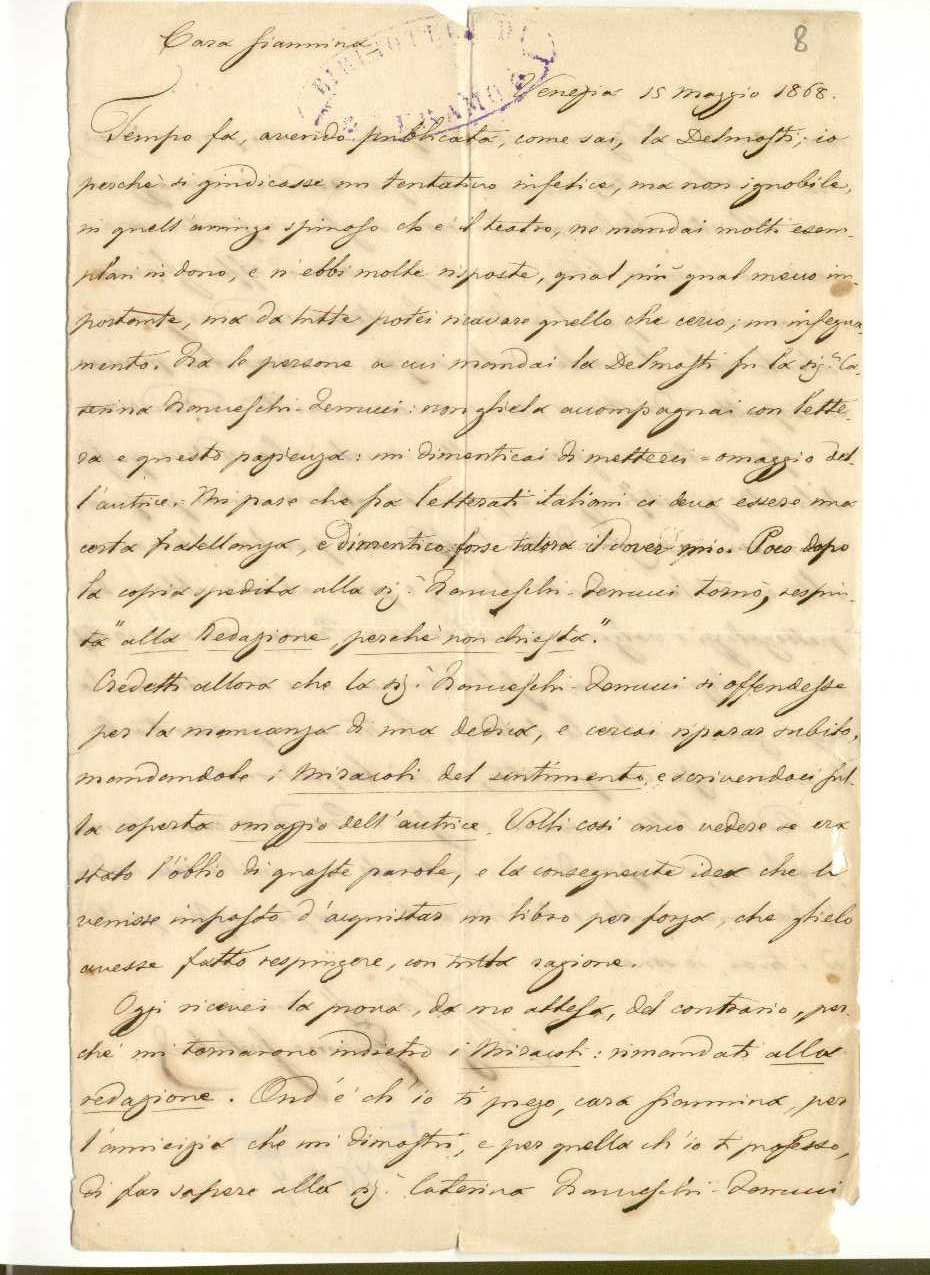 8
Cara Giannina,
BIBLIOTECA DI
TERAMO
Venezia 15 maggio 1868.
Tempo fa, avendo pubblicata, come sai, la Delmasti; io
perchè si giudicasse un tentativo infelice, ma non ignobile,
in quell'aringo spinoso ch'è il teatro, ne mandai molti esem-
plari in dono, e n'ebbi molte risposte, qual più qual meno im-
portante, ma da tutte potei ricavare quello che cerco; un insegna-
mento. Tra le persone a cui mandai la Delmasti fu la sig.ª Ca-
terina Franceschi-Ferrucci: non gliela accompagnai con lette-
ra e questo pazienza: mi dimenticai di metterci = omaggio del-
l'autrice. Mi pare che fra letterati italiani ci deva essere una
certa fratellanza, e dimentico forse talora il dover mio. Poco dopo
la copia spedita alla sig.ª Franceschi-Ferrucci tornò, respin-
ta "alla Redazione, perchè non chiesta".
Credetti allora che la sig.ª Franceschi-Ferrucci si offendesse
per la mancanza di una dedica, e cercai riparar subito,
mandandole i Miracoli del sentimento, e scrivendoci sul-
la coperta omaggio dell'autrice. Volli così anco vedere se era
stato l'oblio di queste parole, e la conseguente idea che le
venisse imposto d'acquistar un libro per forza, che glielo
avesse fatto respingere, con tutta ragione.
Oggi ricevei la prova, da me attesa, del contrario, per-
chè mi tornarono indietro i Miracoli: rimandati alla
redazione. Ond'è ch'io ti prego, cara Giannina, per
l'amicizia che mi dimostri, e per quella ch'io ti professo,
di far sapere alla sig.ª Caterina Franceschi-Ferrucci